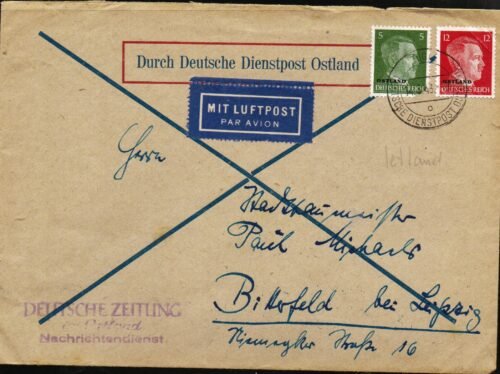 5 5
12 12
OSTLAND OSTLAND
DEUTSCHES REICH DEUTSCHES REICH
Durch Deutsche Dienstpost Ostland
DIENSTPOST
MIT LUFTPOST
PAR AVION
Herrn
lettland
Stadtbaumeister
Paul Michaels
Bitterfeld bei Leipzig
Niemegker Straße 16
DEUTSCHE ZEITUNG
Ostland
Nachrichtendienst